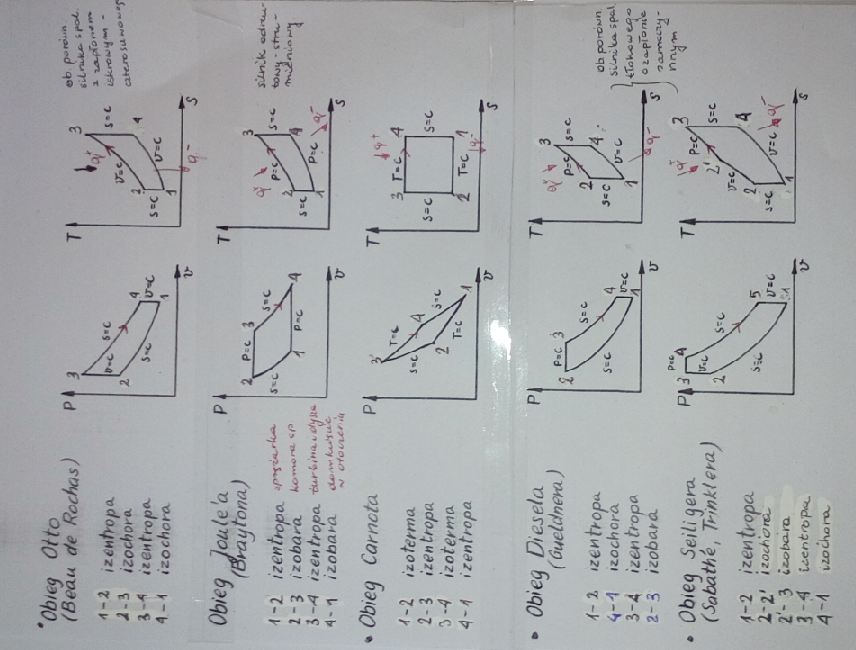 • Obieg Otto
(Beau de Rochas)
1-2 izentropa
2-3 izochora
3-4 izentropa
4-1 izochora
P
3
v=c
2
s=c
4
v=c
s=c
1
v
T
3
s=c
v=c
2
4
v=c
s=c
1
s
q+
q-
ob. porówn
silnika spal.
z zapłonem
iskrowym -
Obieg Joule'a
(Braytona)
1-2 izentropa sprężarka
2-3 izobara komora sp.
3-4 izentropa turbina
4-1 izobara
w otoczeniu
P
2
p=c
3
s=c
4
s=c
1
p=c
v
T
3
s=c
p=c
2
4
p=c
s=c
1
s
q+
q-
silnik odrzu-
towy - stru-
mieniowy
• Obieg Carnota
1-2 izoterma
2-3 izentropa
3-4 izoterma
4-1 izentropa
P
3
T=c
4
s=c
s=c
2
T=c
1
v
T
3
T=c
4
s=c
s=c
2
T=c
1
s
q+
q-
• Obieg Diesela
1-2 izentropa
4-1 izochora
3-4 izentropa
2-3 izobara
P
2
p=c
3
s=c
4
v=c
s=c
1
v
T
3
s=c
p=c
2
4
v=c
s=c
1
s
q+
q-
ob porówn
silnika spal
tłokowego
o zapłonie
samoczy-
nnym
• Obieg Seiligera
(Sabathé, Trinklera)
1-2 izentropa
2-2' izochora
2'-3 izobara
3-4 izentropa
4-1 izochora
P
p=c
3
4
v=c
2
s=c
5
v=c
s=c
1
v
T
3
s=c
p=c
2'
4
v=c
2
v=c
s=c
1
s
q+
q-